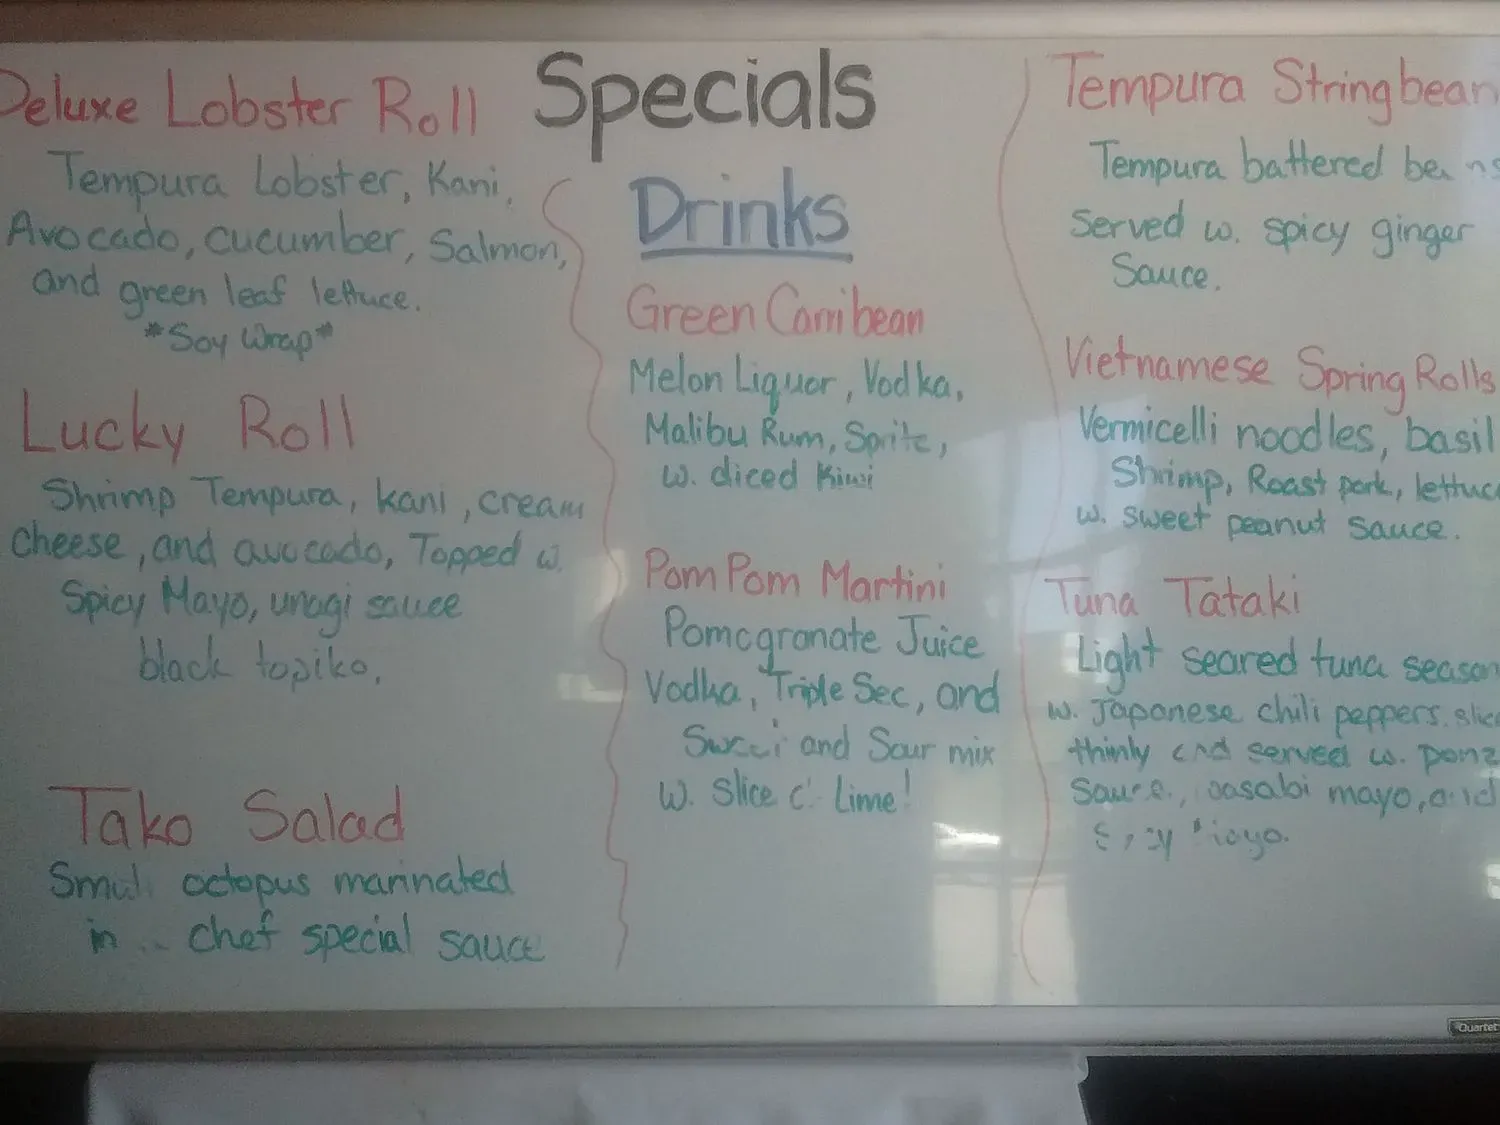 Specials
Deluxe Lobster Roll
Tempura Lobster, Kani,
Avocado, cucumber, Salmon,
and green leaf lettuce.
*Soy Wrap*
Lucky Roll
Shrimp Tempura, kani, cream
cheese, and avocado, Topped w.
Spicy Mayo, unagi sauce
black topiko.
Tako Salad
octopus marinated
in chef special sauce
Drinks
Green Carribean
Melon Liquor, Vodka,
Malibu Rum, Sprite,
w. diced Kiwi
Pom Pom Martini
Pomegranate Juice
Vodka, Triple Sec, and
and Sour mix
w. Slice Lime!
Tempura Stringbean
Tempura battered beans
Served w. spicy ginger
Sauce.
Vietnamese Spring Rolls
Vermicelli noodles, basil
Shrimp, Roast pork, lettuc
w. sweet peanut sauce.
Tuna Tataki
Light seared tuna season
w. Japanese chili peppers. slic
thinly and served w. ponz
Sauce, wasabi mayo, and
Quartet